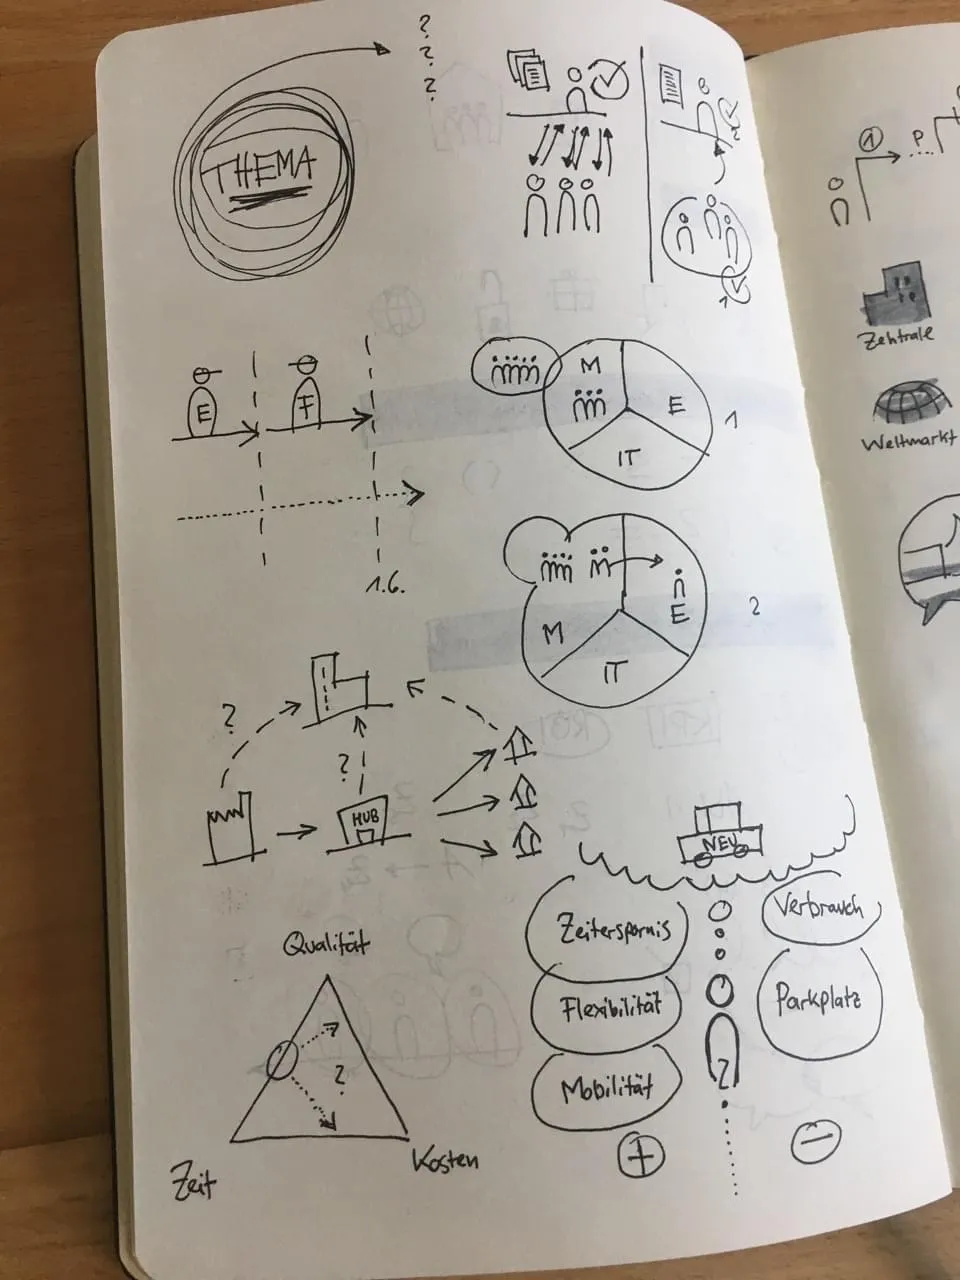 ?
?
?
THEMA
2
1
E
F
1.6.
M
E
IT
1
M
E
IT
2
?
?
HUB
NEU
Zeiterspornis
Flexibilität
Mobilität
+
Verbrauch
Parkplatz
−
?
Qualität
?
Zeit
Kosten
1
P
...
Zentrale
Weltmarkt